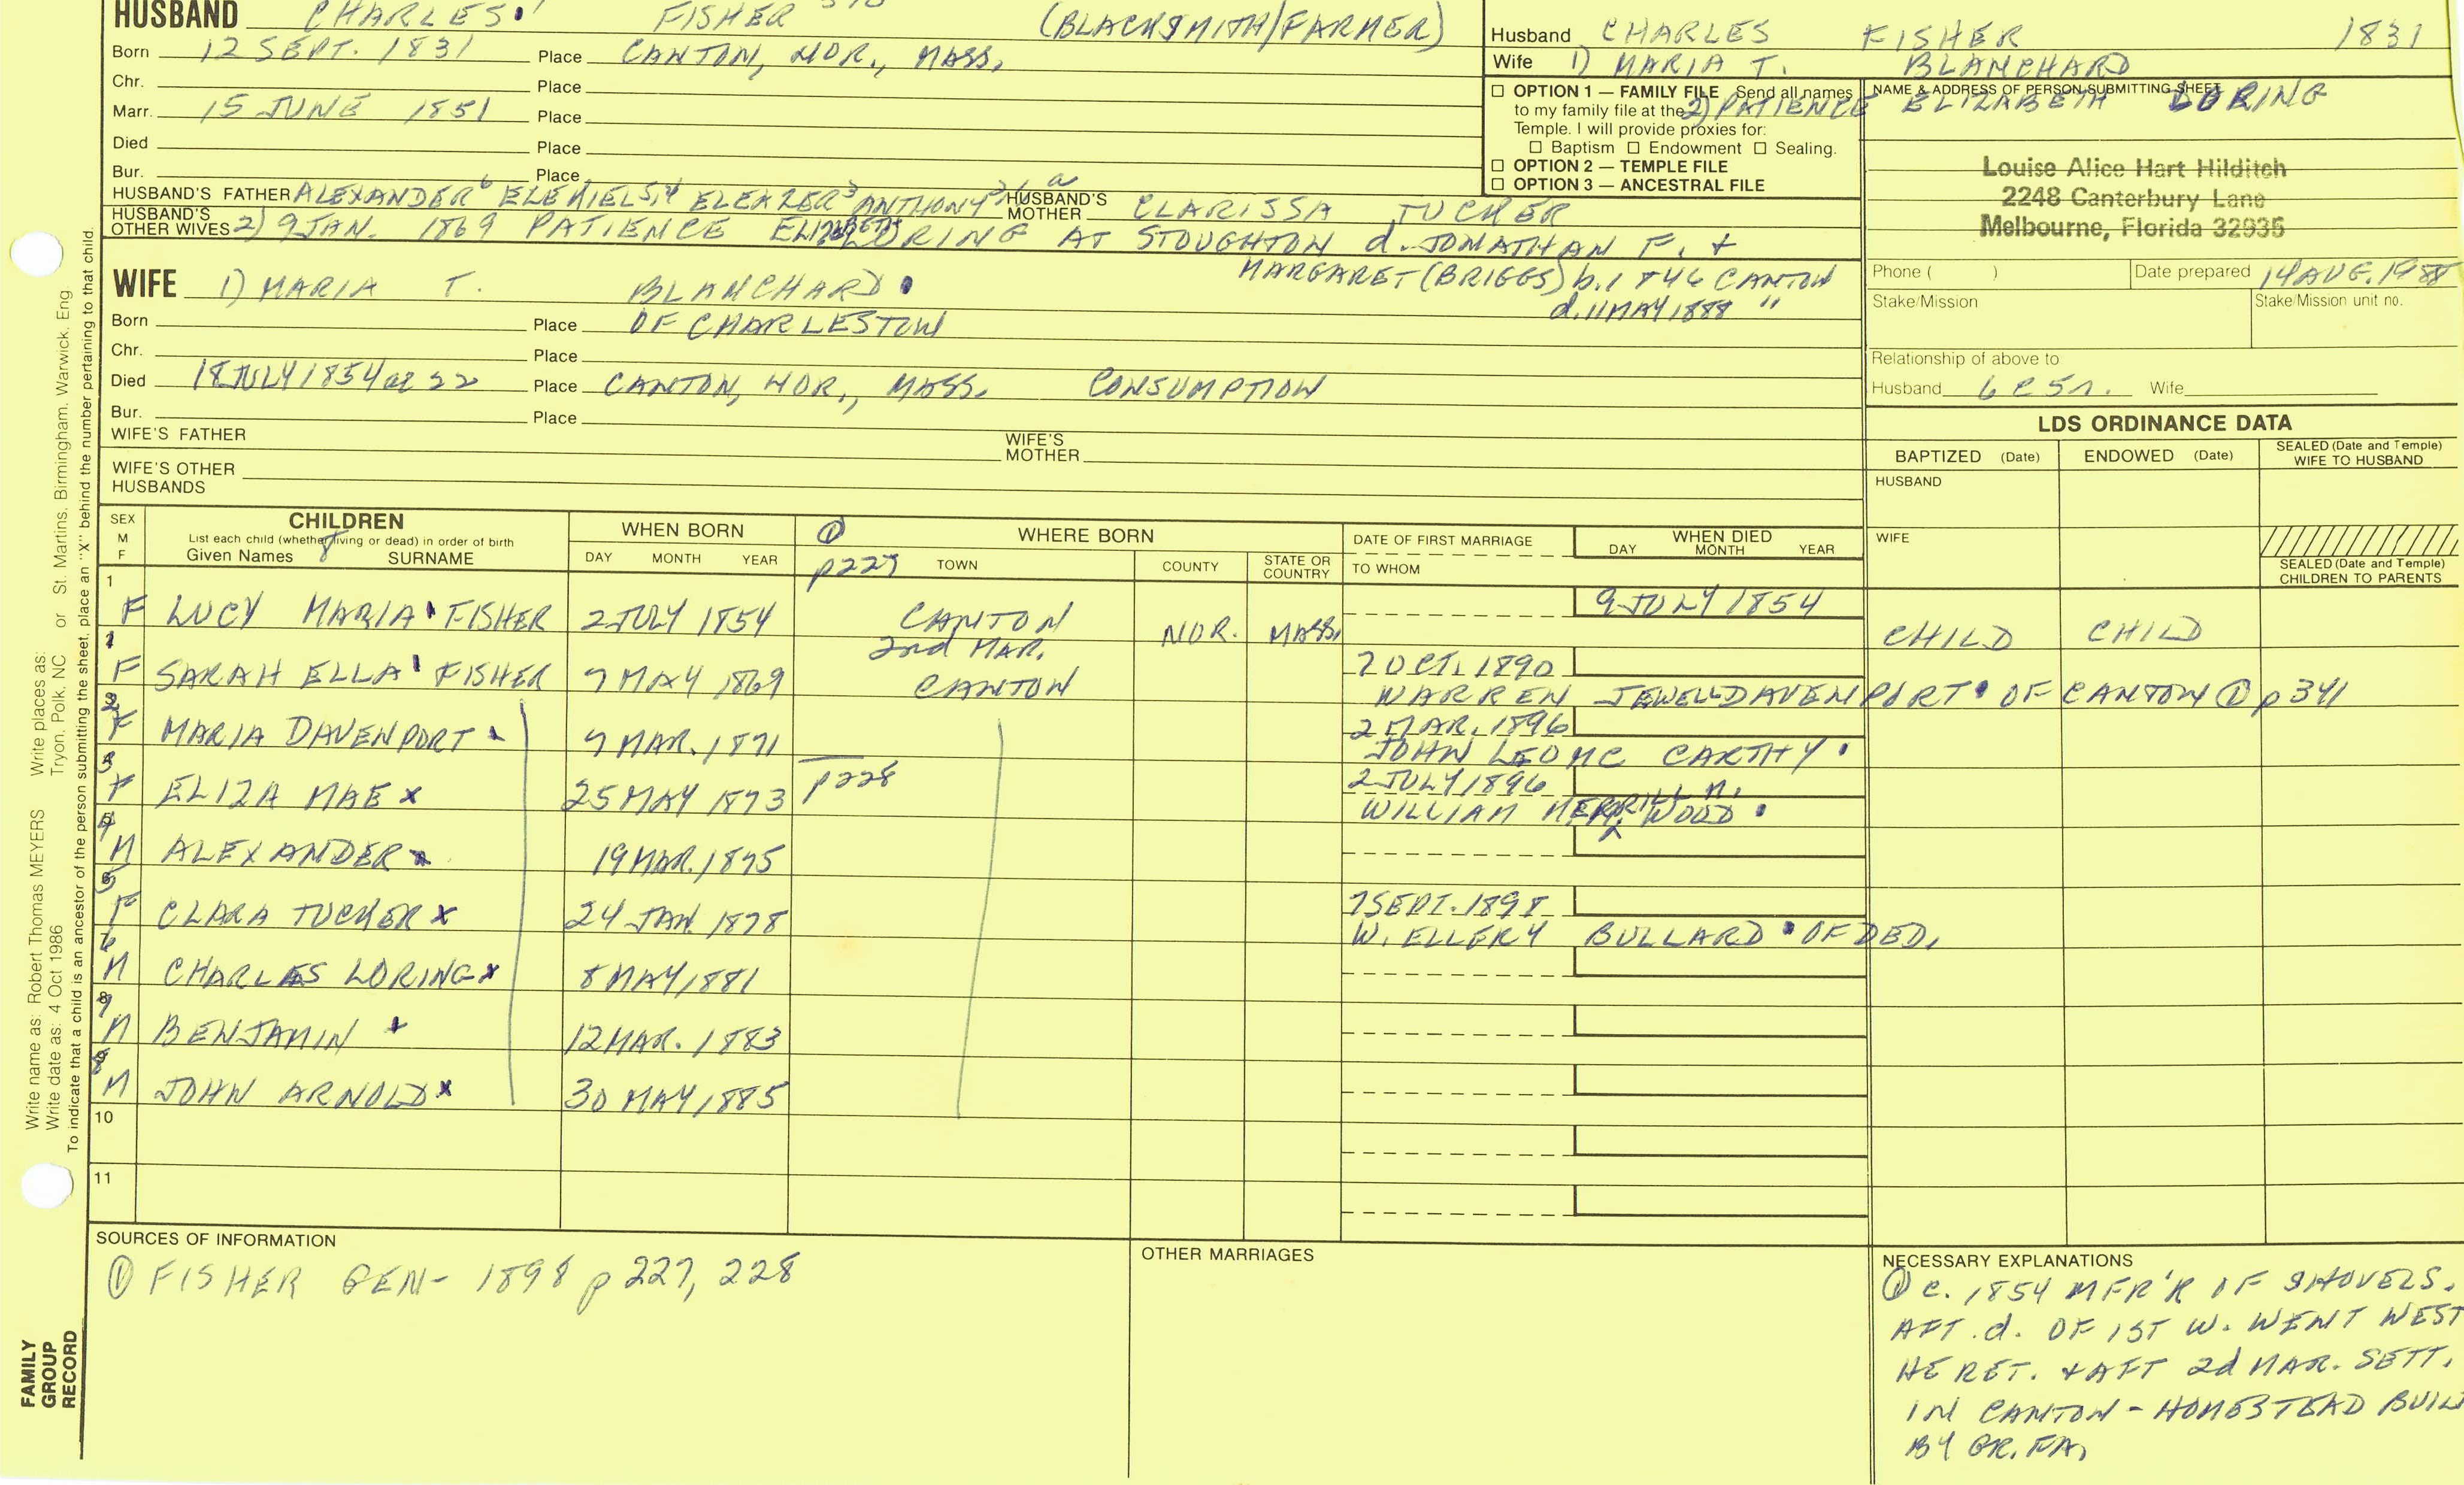 HUSBAND CHARLES FISHER (BLACKSMITH/FARMER)
Born 12 SEPT. 1831 Place CANTON, NOR., MASS.
Chr. Place
Marr. 15 JUNE 1851 Place
Died Place
Bur. Place
HUSBAND'S FATHER ALEXANDER6 ELEAZER3 ANTHONY HUSBAND'S MOTHER CLARISSA TUCKER
HUSBAND'S OTHER WIVES 2) 9 JAN. 1869 PATIENCE LORING AT STOUGHTON d. JONATHAN F. +
MARGARET (BRIGGS) b. 1846 CANTON
d. 11 MAY 1888 "
WIFE 1) MARIA T. BLANCHARD
Born Place OF CHARLESTOW
Chr. Place
Died 18 JULY 1854 ae 22 Place CANTON, NOR., MASS. CONSUMPTION
Bur. Place
WIFE'S FATHER WIFE'S MOTHER
WIFE'S OTHER HUSBANDS
Husband CHARLES FISHER 1831
Wife 1) MARIA T. BLANCHARD
2) PATIENCE ELIZABETH LORING
☐ OPTION 1 — FAMILY FILE Send all names
to my family file at the
Temple. I will provide proxies for:
☐ Baptism ☐ Endowment ☐ Sealing.
☐ OPTION 2 — TEMPLE FILE
☐ OPTION 3 — ANCESTRAL FILE
NAME & ADDRESS OF PERSON SUBMITTING SHEET
Louise Alice Hart Hilditch
2248 Canterbury Lane
Melbourne, Florida 32935
Phone ( ) Date prepared 14 AUG. 1988
Stake/Mission Stake/Mission unit no.
Relationship of above to
Husband 6 C 5 r. Wife
LDS ORDINANCE DATA
BAPTIZED (Date) ENDOWED (Date) SEALED (Date and Temple) WIFE TO HUSBAND
HUSBAND
WIFE
SEALED (Date and Temple) CHILDREN TO PARENTS
SEX M F
CHILDREN
List each child (whether living or dead) in order of birth
Given Names 8 SURNAME
WHEN BORN DAY MONTH YEAR
① p227
WHERE BORN TOWN COUNTY STATE OR COUNTRY
DATE OF FIRST MARRIAGE TO WHOM
WHEN DIED DAY MONTH YEAR
1 F LUCY MARIA FISHER 2 JULY 1854 CANTON NOR. MASS. 9 JULY 1854 CHILD CHILD
2nd MAR.
1 F SARAH ELLA FISHER 7 MAY 1869 CANTON 7 OCT. 1890
WARREN JEWELL DAVENPORT OF CANTON ① p 341
2 F MARIA DAVENPORT 7 MAR. 1871 2 MAR. 1896
JOHN LEO MC CARTHY
3 F ELIZA MAE x 25 MAY 1873 p228 2 JULY 1896
WILLIAM MERRILL WOOD
4 M ALEXANDER x 19 MAR. 1875
5 F CLARA TUCKER x 24 JAN. 1878 7 SEPT. 1898
W. ELLERY BULLARD OF DED.
6 M CHARLES LORING x 8 MAY 1881
7 M BENJAMIN x 12 MAR. 1883
8 M JOHN ARNOLD x 30 MAY 1885
10
11
SOURCES OF INFORMATION
① FISHER GEN- 1898 p 227, 228
OTHER MARRIAGES
NECESSARY EXPLANATIONS
① C. 1854 MFR'R OF SHOVELS.
AFT. d. OF 1ST W. WENT WEST
HE RET. + AFT 2d MAR. SETT.
IN CANTON - HOMESTEAD BUIL
BY GR. FA.
Write name as: Robert Thomas MEYERS Write places as: St. Martins, Birmingham, Warwick, Eng
Write date as: 4 Oct 1986 Tryon, Polk, NC or
To indicate that a child is an ancestor of the person submitting the sheet, place an "X" behind the number pertaining to that child.
FAMILY GROUP RECORD